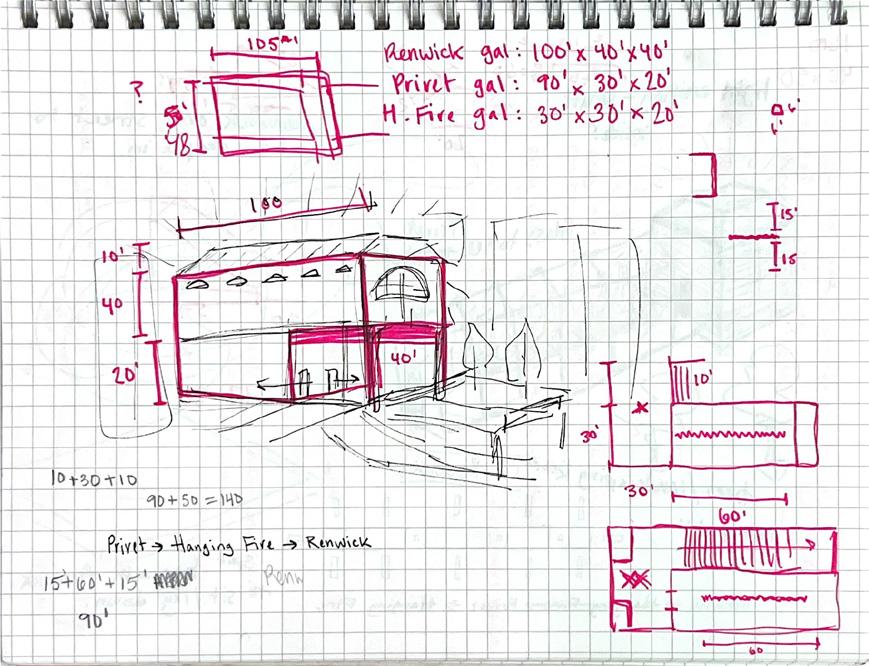 105
Renwick gal: 100' x 40' x 40'
Privet gal: 90' x 30' x 20'
H. Fire gal: 30' x 30' x 20'
?
48
6'
6'
15'
15
100
10'
40
20'
40'
10'
30'
30'
60'
60
10+30+10
90+50=140
Privet → Hanging Fire → Renwick
15'+60'+15'
Renw
90'